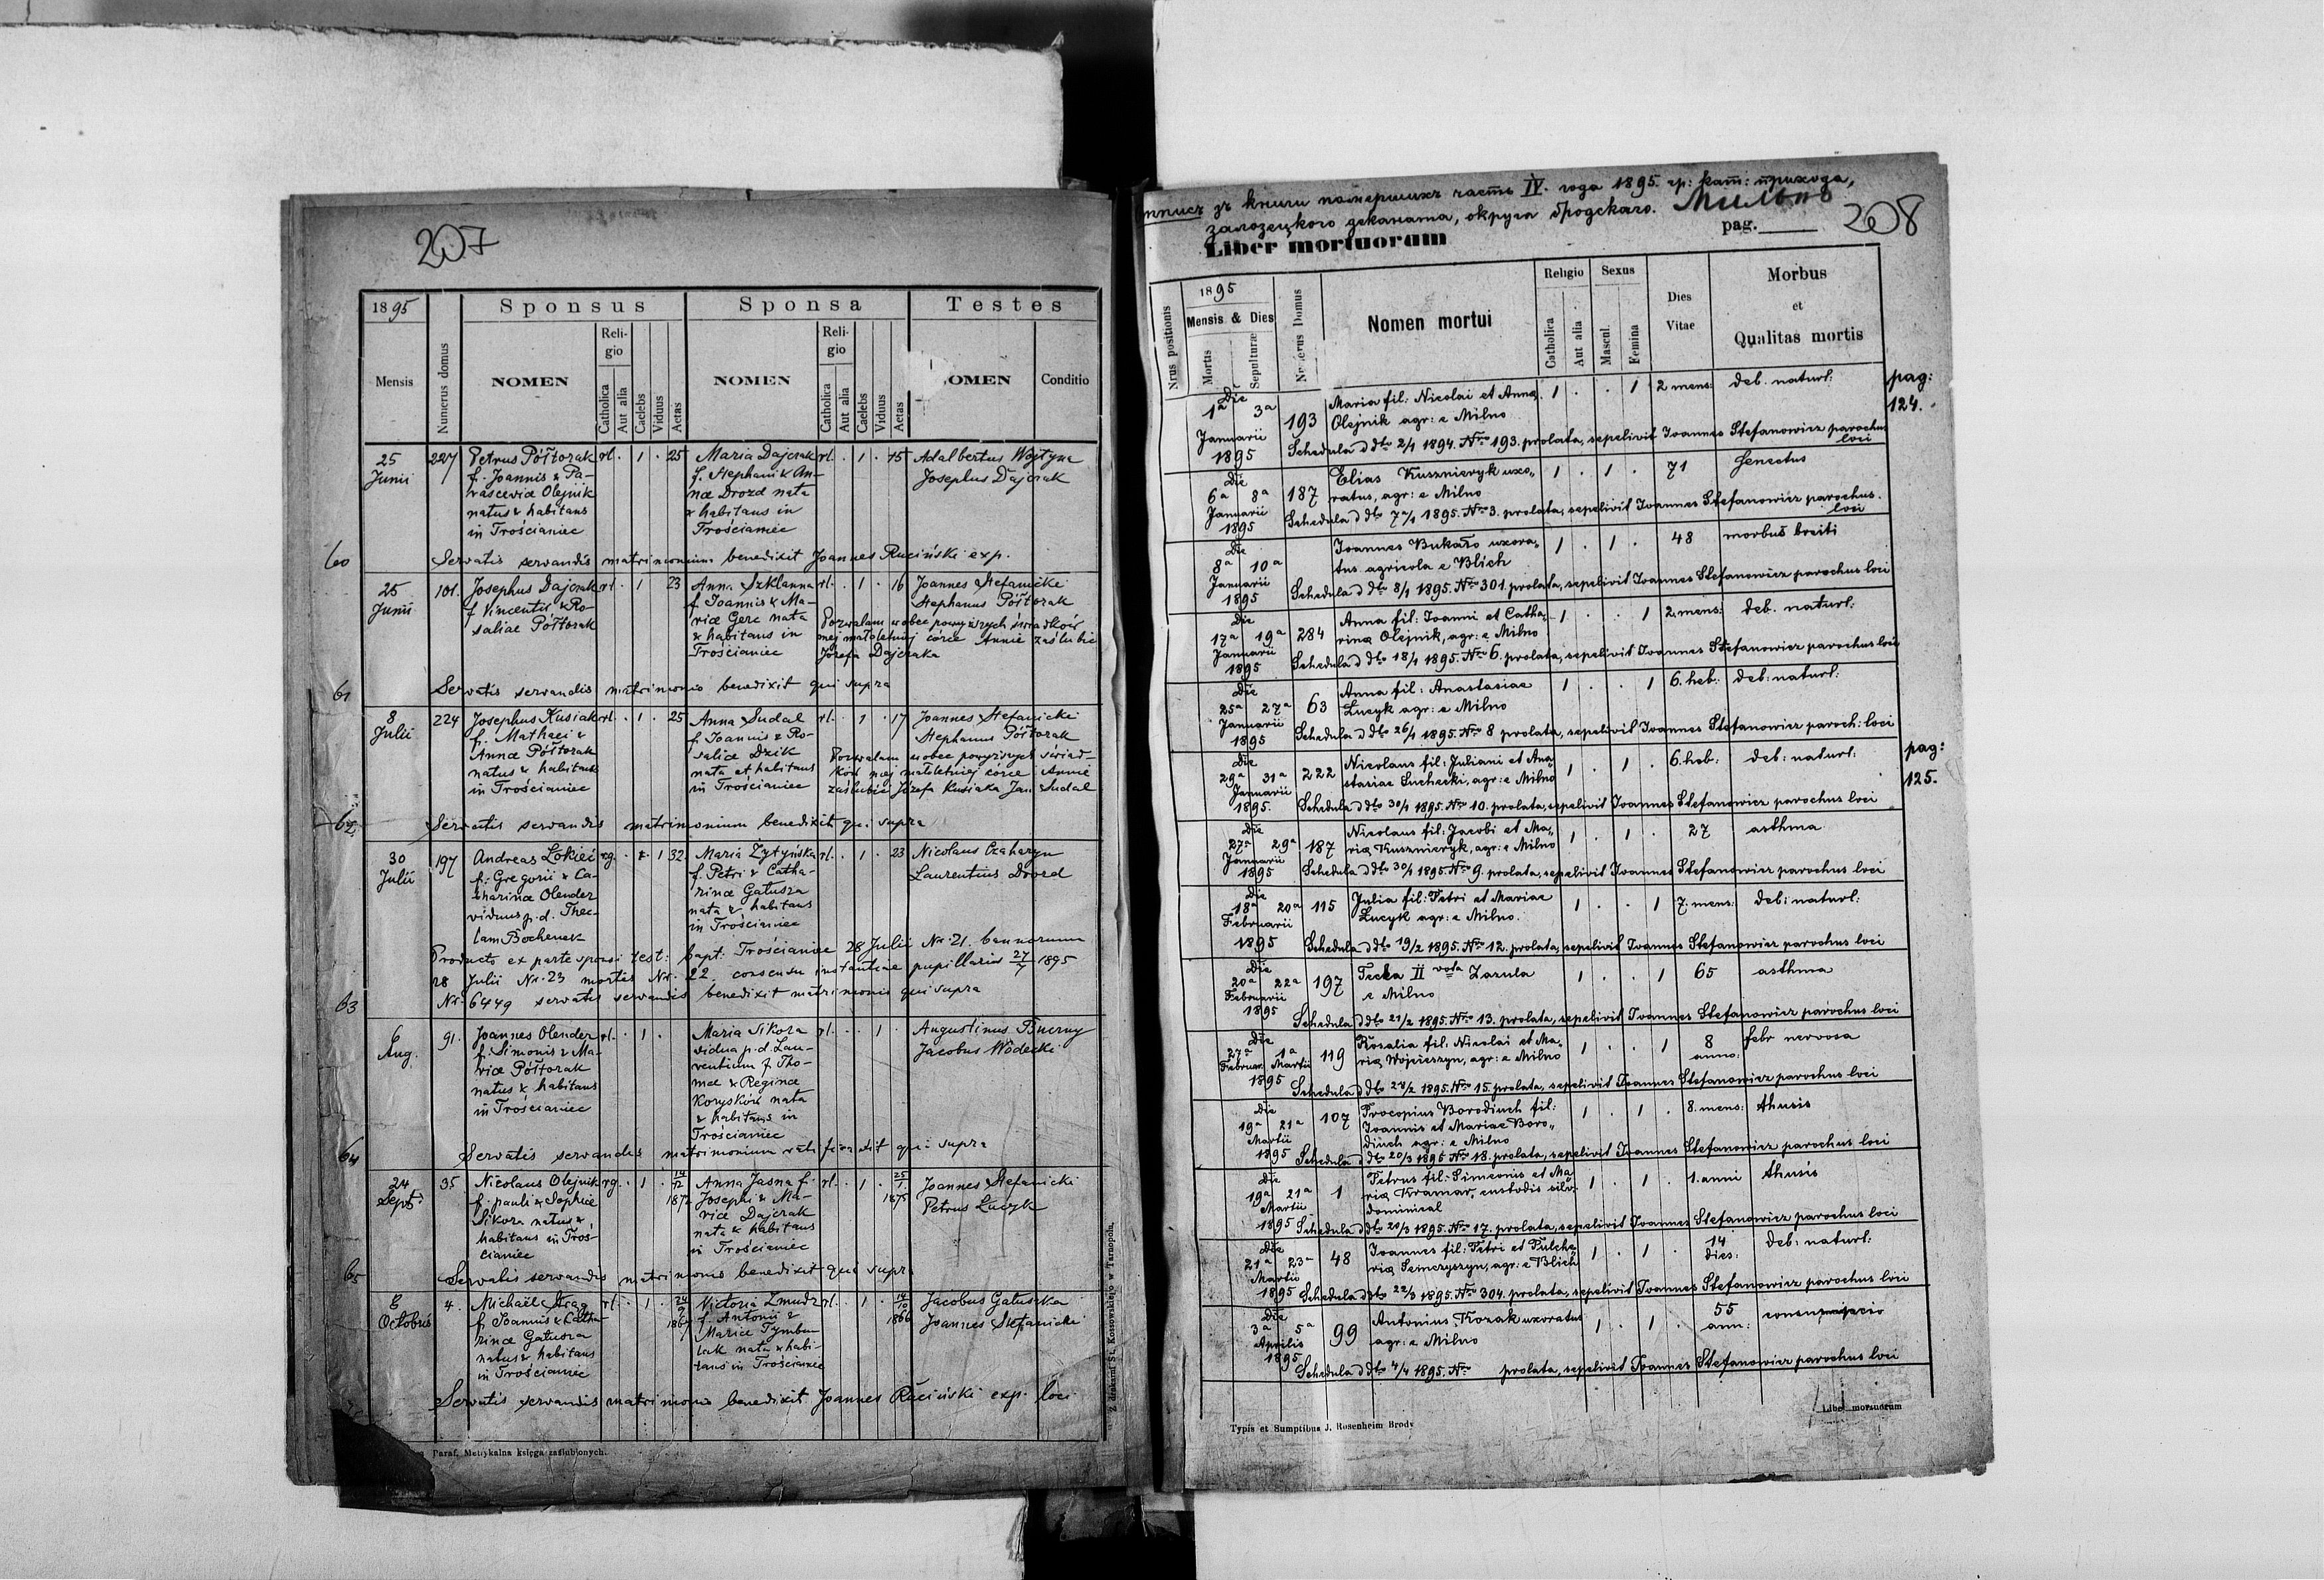 207
1895
Sponsus
Sponsa
Testes
Mensis
Numerus domus
NOMEN
Religio
Catholica
Aut alia
Caelebs
Viduus
Aetas
NOMEN
Religio
Catholica
Aut alia
Caelebs
Viduus
Aetas
OMEN
Conditio
25 Junii
227
Petrus Półtorak
f. Joannis & Pa-
rascevia Olejnik
natus & habitans
in Trościaniec
rl. . 1 . 25
Maria Dajczak
f. Stephani & An-
na Drozd nata
& habitans in
Trościaniec
rl. . 1 . 15
Adalbertus Wojtyna
Josephus Dajczak
60
Servatis servandis matrimonium benedixit Joannes Ruciński exp.
25 Junii
101.
Josephus Dajczak
f. Vincentii & Ro-
saliae Półtorak
rl. . 1 23
Anna Szklanna
f. Joannis & Ma-
ria Gerc nata
& habitans in
Trościaniec
rl. . 1 . 16
Joannes Stefanicki
Stephanus Półtorak
Pozwalam wobec powyższych świadków
mej małoletniej córce Annie zaślubić
Józefa Dajczaka
61
Servatis servandis matrimonio benedixit qui supra
8 Julii
224
Josephus Kusiak
f. Mathaei &
Anna Półtorak
natus & habitans
in Trościaniec
rl. . 1 . 25
Anna Sudal
f. Joannis & Ro-
salia Dzik
nata et habitans
in Trościaniec
rl. . 1 . 17
Joannes Stefanicki
Stephanus Półtorak
Pozwalam wobec powyższych świad-
ków mej małoletniej córce Annie
zaślubić Józefa Kusiaka Jan Sudal
62
Servatis servandis matrimonium benedixit qui supra
30 Julii
197
Andreas Łokieć
f. Gregorii & Ca-
tharina Olender
viduus p. d. Thec-
lam Bochenek
rg. . . 1 32
Maria Zytyńska
f. Petri & Catha-
rina Gałusza
nata & habitans
in Trościaniec
rl. . 1 . 23
Nicolaus Czaharyn
Laurentius Drozd
Producto ex parte sponsi test: bapt: Trościaniec 28 Julii Nr. 21. bannorum
28 Julii Nr. 23 mortis Nr. 22 consensu instantiae pupillaris 27/7 1895
63
Nr. 6449 servatis servandis benedixit matrimonio qui supra
6 Aug.
91.
Joannes Olender
f. Simonis & Ma-
ria Półtorak
natus & habitans
in Trościaniec
rl. . 1 .
Maria Sikora
vidua p. d. Lau-
rentium f. Tho-
mae & Regina
Koryskóń nata
& habitans in
Trościaniec
rl. . . 1 .
Augustinus
Jacobus Wodecki
64
Servatis servandis matrimonium qui supra
24 Sept:
35
Nicolaus Olejnik
f. pauli & Sophiae
Sikora natus &
habitans in Troś-
cianiec
rg. . 1 . 14/12 1872
Anna Jasna f.
Josephi & Ma-
ria Dajczak
nata & habitans
in Trościaniec
rl. . 1 . 25/1 1875
Joannes Stefanicki
Petrus Łuczyk
65
Servatis servandis matrimonio benedixit qui supra
8 Octobris
4.
Michaël Strąg
f. Joannis & Catha-
rina Gałusza
natus & habitans
in Trościaniec
rl. . 1 .
Victoria Zmudz
f. Antonii &
Maria Tymbu-
lak nata & habi-
tans in Trościaniec
rl. . 1 . 14/10 1866
Jacobus Gałuszka
Joannes Stefanicki
Servatis servandis matrimonio benedixit Joannes Ruciński exp. loci
Paraf. Metrykalna księga zaślubionych.
Z drukarni St. Kossowskiego w Tarnopolu.
зъ книги помершихъ часть IV. года 1895. гр: кат: прихода, Мильно
залозецкого деканата, округа бродскаго.
208
Liber mortuorum
pag.
Nrus positionis
1895
Mensis & Dies
Mortis
Sepulturæ
Numerus Domus
Nomen mortui
Religio
Catholica
Aut alia
Sexus
Mascul.
Femina
Dies Vitae
Morbus et Qualitas mortis
Die 1a 3a Januarii 1895
193
Maria fil: Nicolai et Anna
Olejnik agr: e Milno
1 . . 1
2 mens:
deb. naturl:
pag: 124.
Schedula d dto 2/1 1894. Nro 193. prolata, sepelivit Ioannes Stefanowicz parochus loci
Die 6a 8a Januarii 1895
187
Elias Kusznieryk uxo-
ratus, agr: e Milno
1 . 1 .
71
Senectus
Schedula d dto 7/1 1895. Nro 3. prolata, sepelivit Ioannes Stefanowicz parochus. loci
Die 8a 10a Januarii 1895
Ioannes Bukało uxora-
tus agricola e Blich
1 . 1 .
48
morbus breiti
Schedula d dto 8/1 1895. Nro 301. prolata, sepelivit Ioannes Stefanowicz parochus loci
Die 17a 19a Januarii 1895
284
Anna fil: Ioanni et Catha-
rina Olejnik, agr: e Milno
1 . . 1
2. mens:
deb. naturl:
Schedula d dto 18/1 1895. Nro 6. prolata, sepelivit Ioannes Stefanowicz parochus loci
Die 25a 27a Januarii 1895
63
Anna fil: Anastasiae
Łucyk agr: e Milno
1 . . 1
6. heb:
deb: naturl:
Schedula d dto 26/1 1895. Nro 8 prolata, sepelivit Ioannes Stefanowicz paroch: loci
Die 29a 31a Januarii 1895.
222
Nicolaus fil: Juliani et Ana-
stasiae Suchecki, agr: e Milno
1 . 1 .
6. heb:
deb: naturl:
pag: 125.
Schedula d dto 30/1 1895. Nro 10. prolata, sepelivit Ioannes Stefanowicz parochus loci
Die 27a 29a Januarii 1895
187
Nicolaus fil: Jacobi et Ma-
ria Kusznieryk, agr: e Milno
1 . 1 .
27
asthma
Schedula d dto 30/1 1895. Nro 9. prolata, sepelivit Ioannes Stefanowicz parochus loci
Die 18a 20a Februarii 1895
115
Julia fil: Petri et Mariae
Łucyk agr: e Milno.
1 . . 1
7. mens:
deb: naturl:
Schedula d dto 19/2 1895. Nro 12. prolata, sepelivit Ioannes Stefanowicz parochus loci
Die 20a 22a Februarii 1895
197
Tecla II vota Zazula
e Milno
1 . . 1
65
asthma
Schedula d dto 21/2 1895. Nro 13. prolata, sepelivit Ioannes Stefanowicz parochus loci
Die 27a Februar. 1a Martii 1895
119
Rosalia fil. Nicolai et Ma-
ria Wojcieszyn, agr: e Milno
1 . . 1
8 anno:
febr nervosa
Schedula d dto 28/2 1895. Nro 15. prolata, sepelivit Ioannes Stefanowicz parochus loci
Die 19a 21a Martii 1895
107
Procopius Borodiuch fil:
Ioannis et Mariae Boro-
diuch agr: e Milno
1 . 1 .
8. mens:
thusis
Schedula d dto 20/3 1895 Nro 18. prolata, sepelivit Ioannes Stefanowicz parochus loci
Die 19a 21a Martii 1895
1
Petrus fil: Simeonis et Ma-
ria Kramar, custodis silv:
dominical
1 . 1 .
1. anni
thusis
Schedula d dto 20/3 1895. Nro 17. prolata, sepelivit Ioannes Stefanowicz parochus loci
Die 21a 23a Martii 1895
48
Ioannes fil: Petri et Pulche-
ria Semczyszyn, agr: e Blich
1 . 1 .
14 dies:
deb: naturl:
Schedula d dto 22/3 1895. Nro 304. prolata, sepelivit Ioannes Stefanowicz parochus loci
Die 3a 5a Aprilis 1895
99
Antonius Kozak uxoratus
agr: e Milno
1 . 1 .
55 ann:
Schedula d dto 4/4 1895. Nro prolata, sepelivit Ioannes Stefanowicz parochus loci
Typis et Sumptibus J. Rosenheim Brody
Liber mortuorum